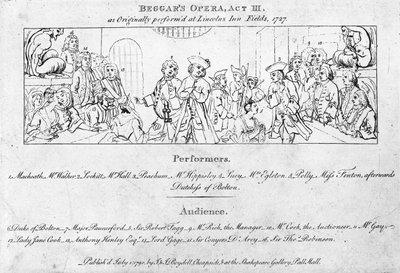 BEGGAR'S OPERA, ACT III.
as Originally perform'd at Lincolns Inn Fields, 1727.
Performers.
1. Mackeath, Mr. Walker. 2. Lockitt, Mr. Hall. 3. Peachum, Mr. Hippisley. 4. Lucy, Mrs. Egleton. 5. Polly, Miss Fenton, afterwards
Dutchess of Bolton.
Audience.
6. Duke of Bolton. 7. Major Pauncford. 8. Sir Robert Fagg. 9. Mr. Rich, the Manager. 10. Mr. Cock, the Auctioneer. 11. Mr. Gay.
12. Lady Jane Cook. 13. Anthony Henley Esqr. 14. Lord Gage. 15. Sir Conyers D'Arcy. 16. Sir Tho. Robinson.
Publish'd July 1. 1790. by J. & J. Boydell, Cheapside, & at the Shakespeare Gallery, Pall Mall.